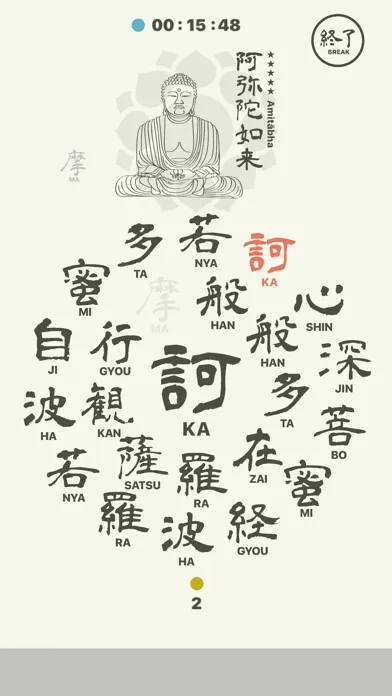 00:15:48
終了
BREAK
★★★★★ Amitābha
阿弥陀如来
摩
MA
多
TA
若
NYA
訶
KA
蜜
MI
摩
MA
般
HAN
心
SHIN
自
JI
行
GYOU
訶
KA
般
HAN
深
JIN
波
HA
観
KAN
多
TA
菩
BO
若
NYA
薩
SATSU
羅
RA
在
ZAI
蜜
MI
羅
RA
波
HA
経
GYOU
2